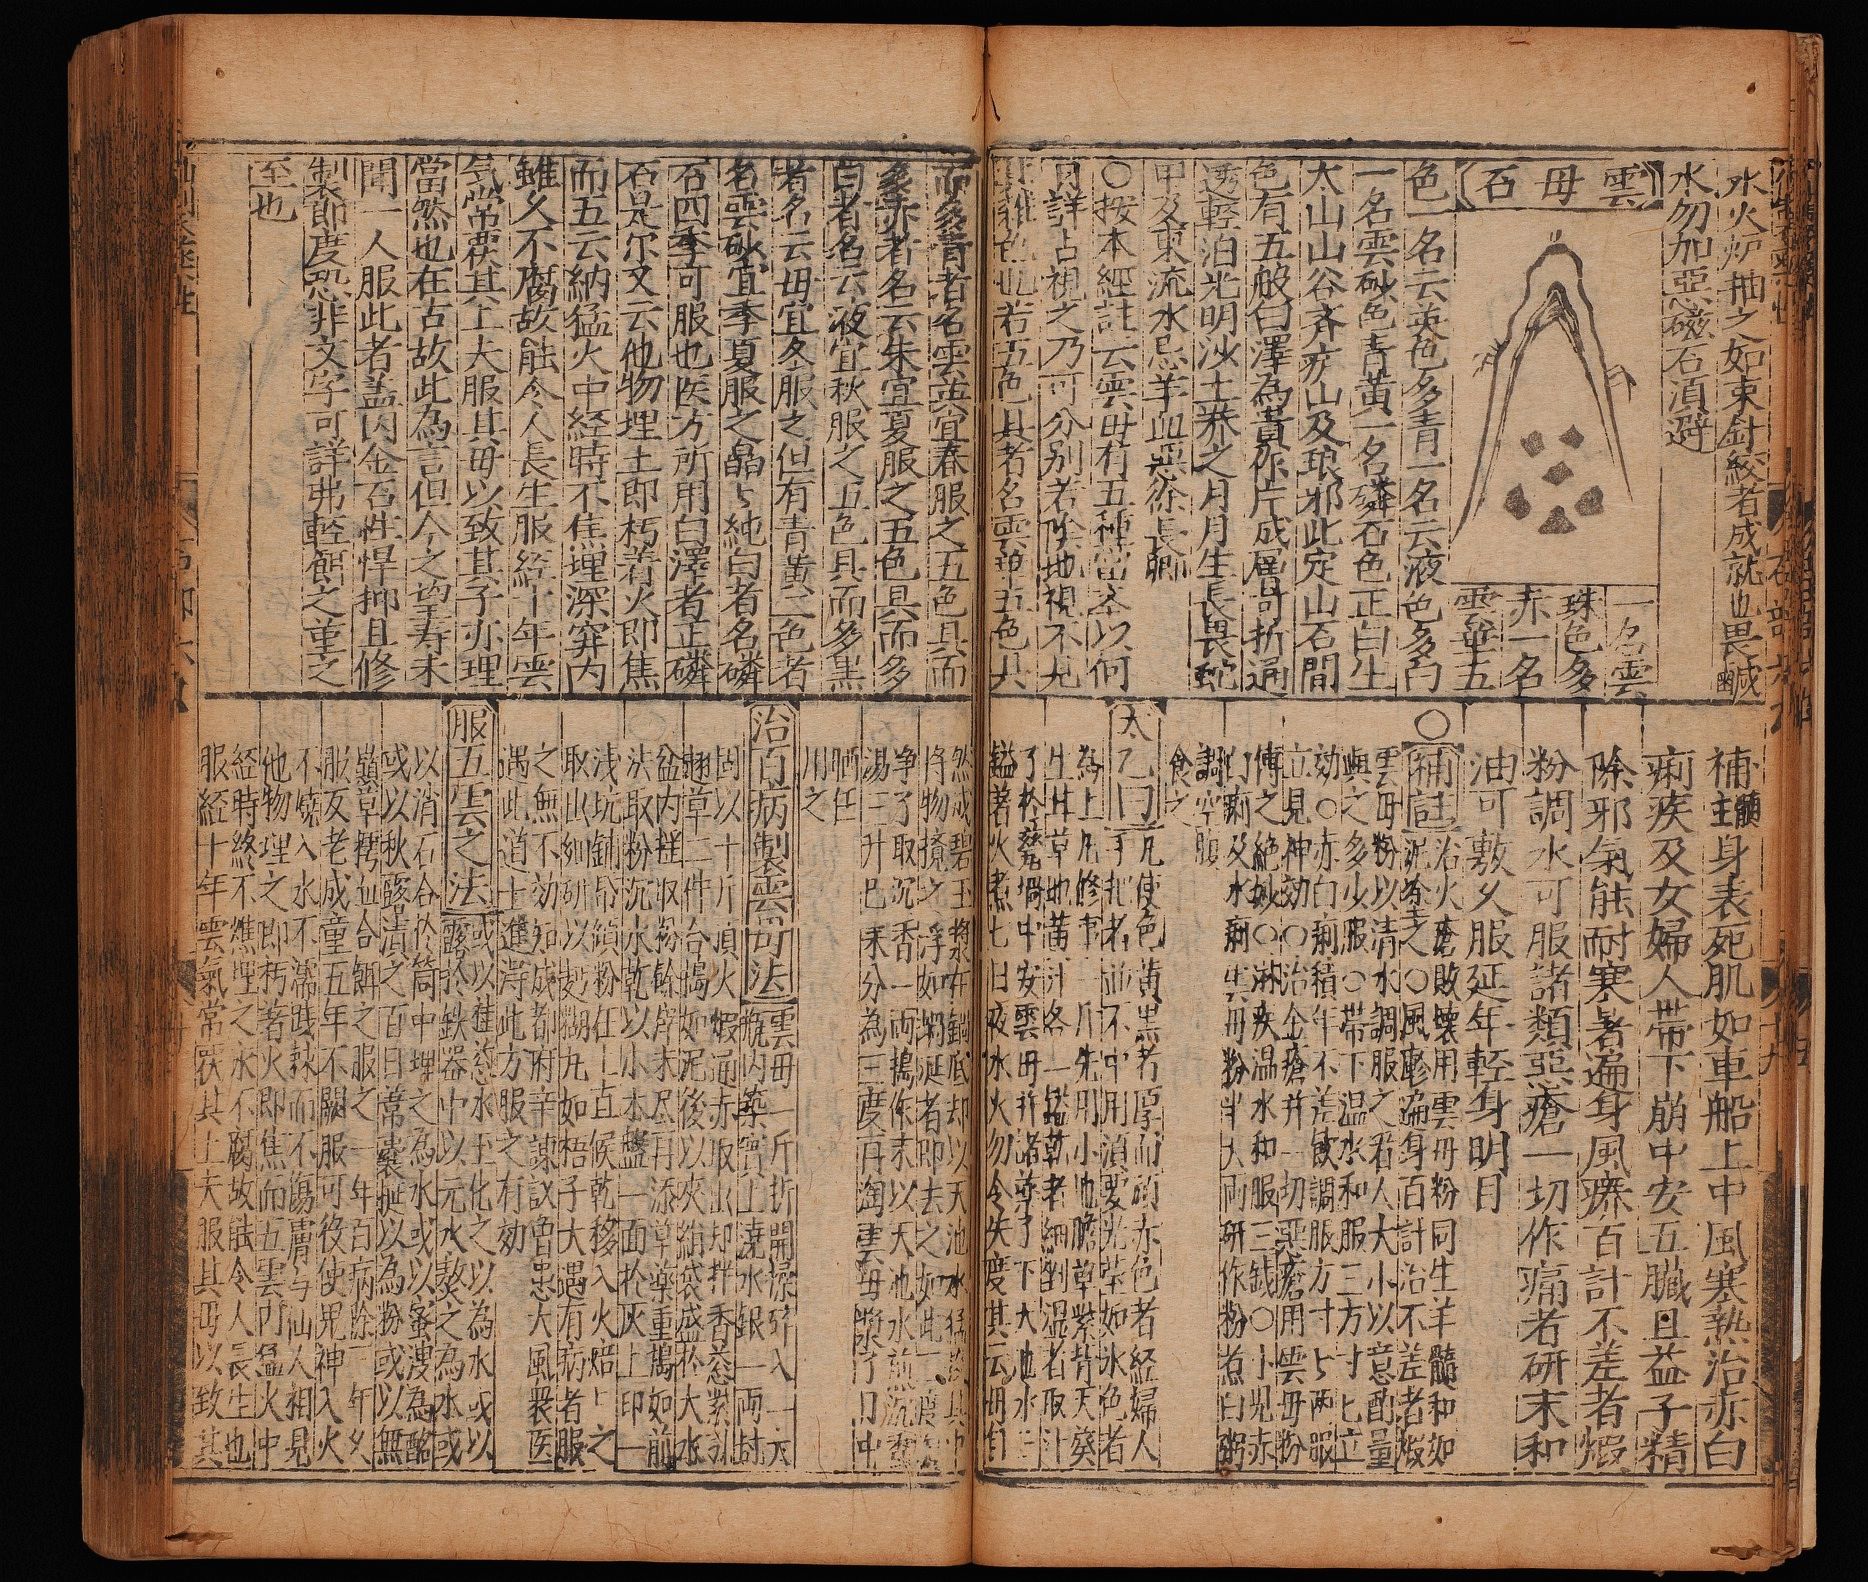 水火炉抽之如束針絞者成就也畏鹹
水勿加惡磁石湏避
雲母石
一名雲
珠色多
赤一名
雲華五
色一名云英色多青一名云液色多白
一名雲砂色青黄一名磷石色正白生
太山山谷斉疒山及琅邪此定山石間
色有五般白澤為貴作片成層可折通
透輕泊光明沙土养之月月生長畏蛇
甲及東流水忌羊血惡徐長卿
〇按本經註云雲母有五種當舉以何
日詳占視之乃可分别若陰地視不見
其雜色也若五色具者名雲華五色具
補髓主身表死肌如車船上中風寒熱治赤白
痢疾及女婦人帶下崩中安五臟且益子精
除邪氣能耐寒暑遍身風疹百計不差者煅
粉調水可服諸類惡瘡一切作痛者研末和
油可敷久服延年輕身明目
〇補註治火瘡敗壞用雲母粉同生羊髓和如
泥塗之〇風疹遍身百計治不差者煅
雲母粉以清水調服之看人大小以意酌量
與之多少服〇帶下温水和服三方寸匕立
効〇赤白痢積年不差飲調服方寸匕兩服
立見神効〇治金瘡并一切惡瘡用雲母粉
傅之絶妙〇淋疾温水和服三錢〇小児赤
白痢及水痢雲母粉半大両研作粉煮白粥
調空腹
食之
太乙曰凡使色黄黒者厚而頑赤色者經婦人
手把者並不中用湏要光莹如氷色者
為上凡修事一斤先用小地膽草紫背天葵
生甘草地黄汁各一鎰乾者細剉湿者取汁
了於瓷堝中安雲母并諸藥了下天池水三
鎰著火煮七日夜水火勿令失度其云母自
而多青者名雲英宜春服之五色具而
多赤者名云朱宜夏服之五色具而多
白者名云液宜秋服之五色具而多黒
者名云母宜冬服之但有青黄二色者
名雲砂宜季夏服之皛〻純白者名磷
石四季可服也医方所用白澤者正磷
石是尔又云他物埋土即朽着火即焦
而五云納猛火中経時不焦埋深穽内
雖久不腐故能令人長生服経十年雲
気常覆其上夫服其母以致其子亦理
當然也在古故此為言但今之望寿未
聞一人服此者盖因金石性悍抑且修
製節度恐非文字可詳弗輕餌之堇之
至也
然成碧玉漿在鍋底却以天池水猛投其中
将物攪之浮如涎者即去之如此三度
净了取沉香一両搗作末以天池水煎沉香
湯三升已来分為三度再淘雲母漿了日中
晒任
用之
治百病製雲母法雲母一斤折開揉碎入一大
瓶内築實上澆水銀一両封
固以十斤頂火煅通赤取出却拌香葱紫引
翹草二件合搗如泥後以夾絹袋盛於大水
盆内揺取粉餘滓未尽再添草藥重搗如前
法取粉沉水乾以小木盤一面於灰上印一
浅坑鋪昂鎖粉在上直候乾移入火焙〻之
取出細研以麪糊丸如梧子大遇有病者服
之無不効知成都府辛諫議曾患大風衆医
遇此道士進淂此方服之有効
服五雲之法或以桂葱水玉化之以為水或以
露於鉄器中以元水熬之為水或
以消石合於筒中埋之為水或以蜜溲為酪
或以秋露漬之百日葦囊挻以為粉或以無
巔草樗血合餌之服之一年百病除二年久
服反老成童五年不闕服可役使鬼神入火
不燒入水不濡践棘而不傷膚与仙人相見
他物埋之即朽著火即焦而五雲内猛火中
経時終不燋埋之永不腐故能令人長生也
服経十年雲氣常覆其上夫服其母以致其